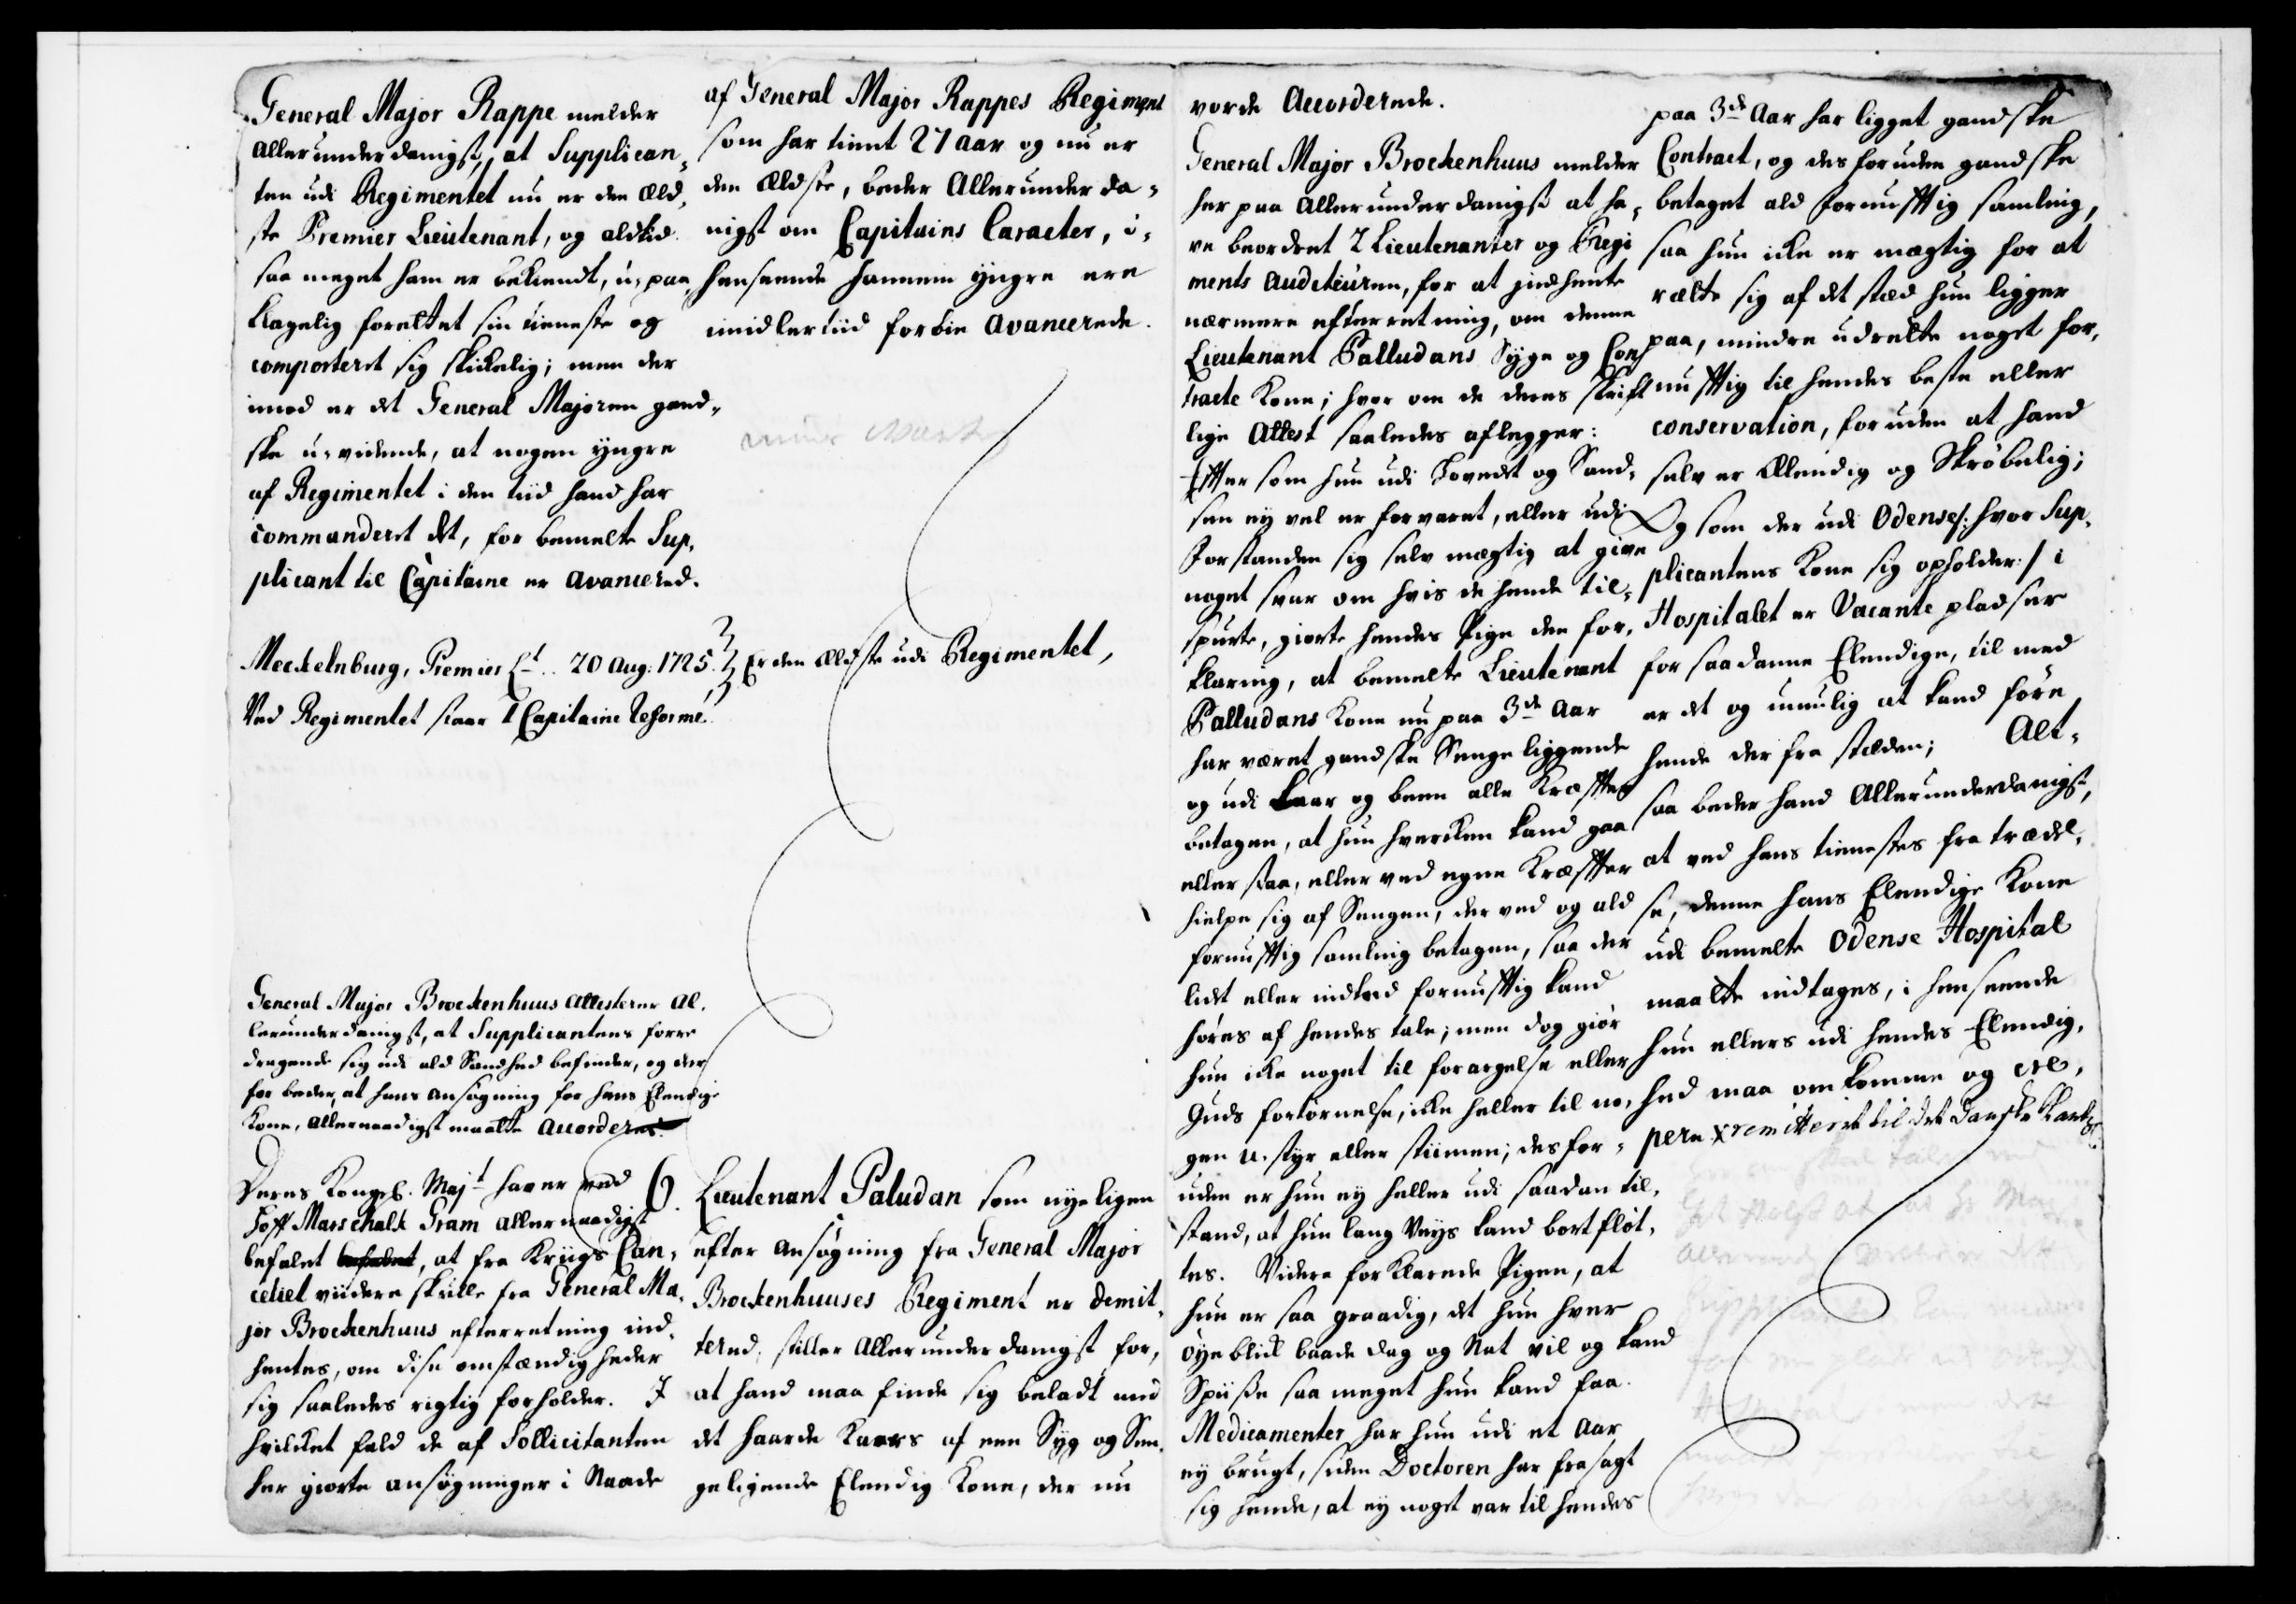 General Major Rappe melder
allerunderdanigst, at Supplican-
ten udi Regimentet nu er den Æld-
ste Premier Lieutenant, og altid
saa meget ham er bekiendt, u-paa-
klagelig forrettet sin tieneste og
comporteret sig skikelig; men der
imod er det General Majoren gand-
ske u-vidende, at nogen yngre
af Regimentet i den tiid hand har
commanderet det, for bemelte Sup-
plicant til Capitaine er avancered.
Meckelnburg, Premier Lt. 20 Aug: 1725.
Ved Regimentet staar 1 Capitaine Reformé.
General Major Brockenhuus attesterer al-
lerunderdanigst, at Supplicantens forre
dragende sig udi ald Sandhed befinder, og der
for beder, at hans ansøgning for hans Elendige
Kone, allernaadigst maatte accorderes.
Deres Kongel. Majt haver ved
Hoff Marschalk Gram allernaadigst
befalet befalet, at fra Kriigs Can-
celiet viidere skulle fra General Ma-
jor Brockenhuus efterretning ind-
hentes, om disse omstændigheder
sig saaledes rigtig forholder. I
hvilcket fald de af Sollicitanten
her giorte ansøgninger i Naade
af General Major Rappes Regiment
som har tient 27 aar og nu er
den Ældste, beder allerunderda-
nigst om Capitains Caracter, i-
henseende hannem yngre ere
imidlertiid forbie avancerede.
Er den Ældste udi Regimentet,
6. Lieutenant Paludan som nyeligen
efter ansøgning fra General Major
Brockenhuuses Regiment er demit-
tered, stiller allerunderdanigst for,
at hand maa finde sig beladt med
det haarde Kaars af een Syg og Sen-
geligende Elendig Kone, der nu
vorde accorderede.
General Major Brockenhuus melder
her paa allerunderdanigst at ha-
ve beordret 2 Lieutenanter og Regi
ments auditeuren, for at indhente
nærmere efterretning, om denne
Lieutenant Palludans Syge og Con-
tracte Kone; hvor om de deres skrift
lige Attest saaledes aflegger:
Efftersom hun udi Hovedet og Sand-
sen ey vel er forvaret, eller udi
Forstanden sig selv mægtig at give
noget svar om hvis de hende til-
spurte, giorte hendes Pige den for-
klaring, at bemelte Lieutenant
Palludans Kone nu paa 3de aar
har været gandske Sengeliggende
og udi Laar og been alle Kræffter
betagen, at hun hvercken kand gaa
eller staa, eller ved egne Kræffter
hielpe sig af Sengen, der ved og ald
fornufftig samling betagen, saa der
lidet eller indted fornufftig kand
høres af hendes tale; men dog giør
hun icke noget til forargelse eller
Guds fortørnelse, icke heller til no-
gen u-styr eller stiimen; desfor-
uden er hun ey heller udi saadan til-
stand, at hun lang Veys kand bort fløt-
tes. Videre forklarede Pigen, at
hun er saa graadig, det hun hver
øyeblick baade Dag og Nat vil og kand
Spiisse saa meget hun kand faa.
Medicamenter har hun udi et aar
ey brugt, siden Doctoren har frasagt
sig hende, at ey noget var til hendes
paa 3de aar har ligget gandske
Contract, og desforuden gandske
betaget ald fornufftig samling,
saa hun icke er mægtig for at
rætte sig af det stæd hun ligger
paa, mindre udrette noget for-
nufftig til hendes beste eller
conservation, foruden at hand
selv er Ællendig og Skrøbelig;
Og som der udi Odense /: hvor Sup-
plicantens Kone sig opholder :/ i
Hospitalet er Vacante pladser
for saadanne Elendige, til med
er det og umulig at kand føre
hende der fra stæden; Alt-
saa beder hand allerunderdanigst,
at ved hans tienestes fra trædel-
se, denne hans Elendige Kone
udi bemelte Odense Hospital
maatte indtages, i henseende
hun ellers udi hendes Elendig-
hed maa omkomme og cre-
pere. remitteret til det Danske Cantzl.